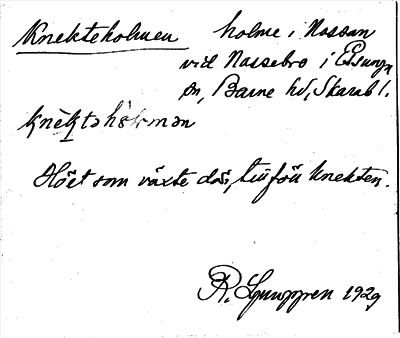 Knekteholmen holme i Nossan
vid Nossebro i Essunga
sn, Barne hd, Skarab l.
knèktəhòlmən
Höet som växte där, tillföll knekten.
R. Ljunggren 1929